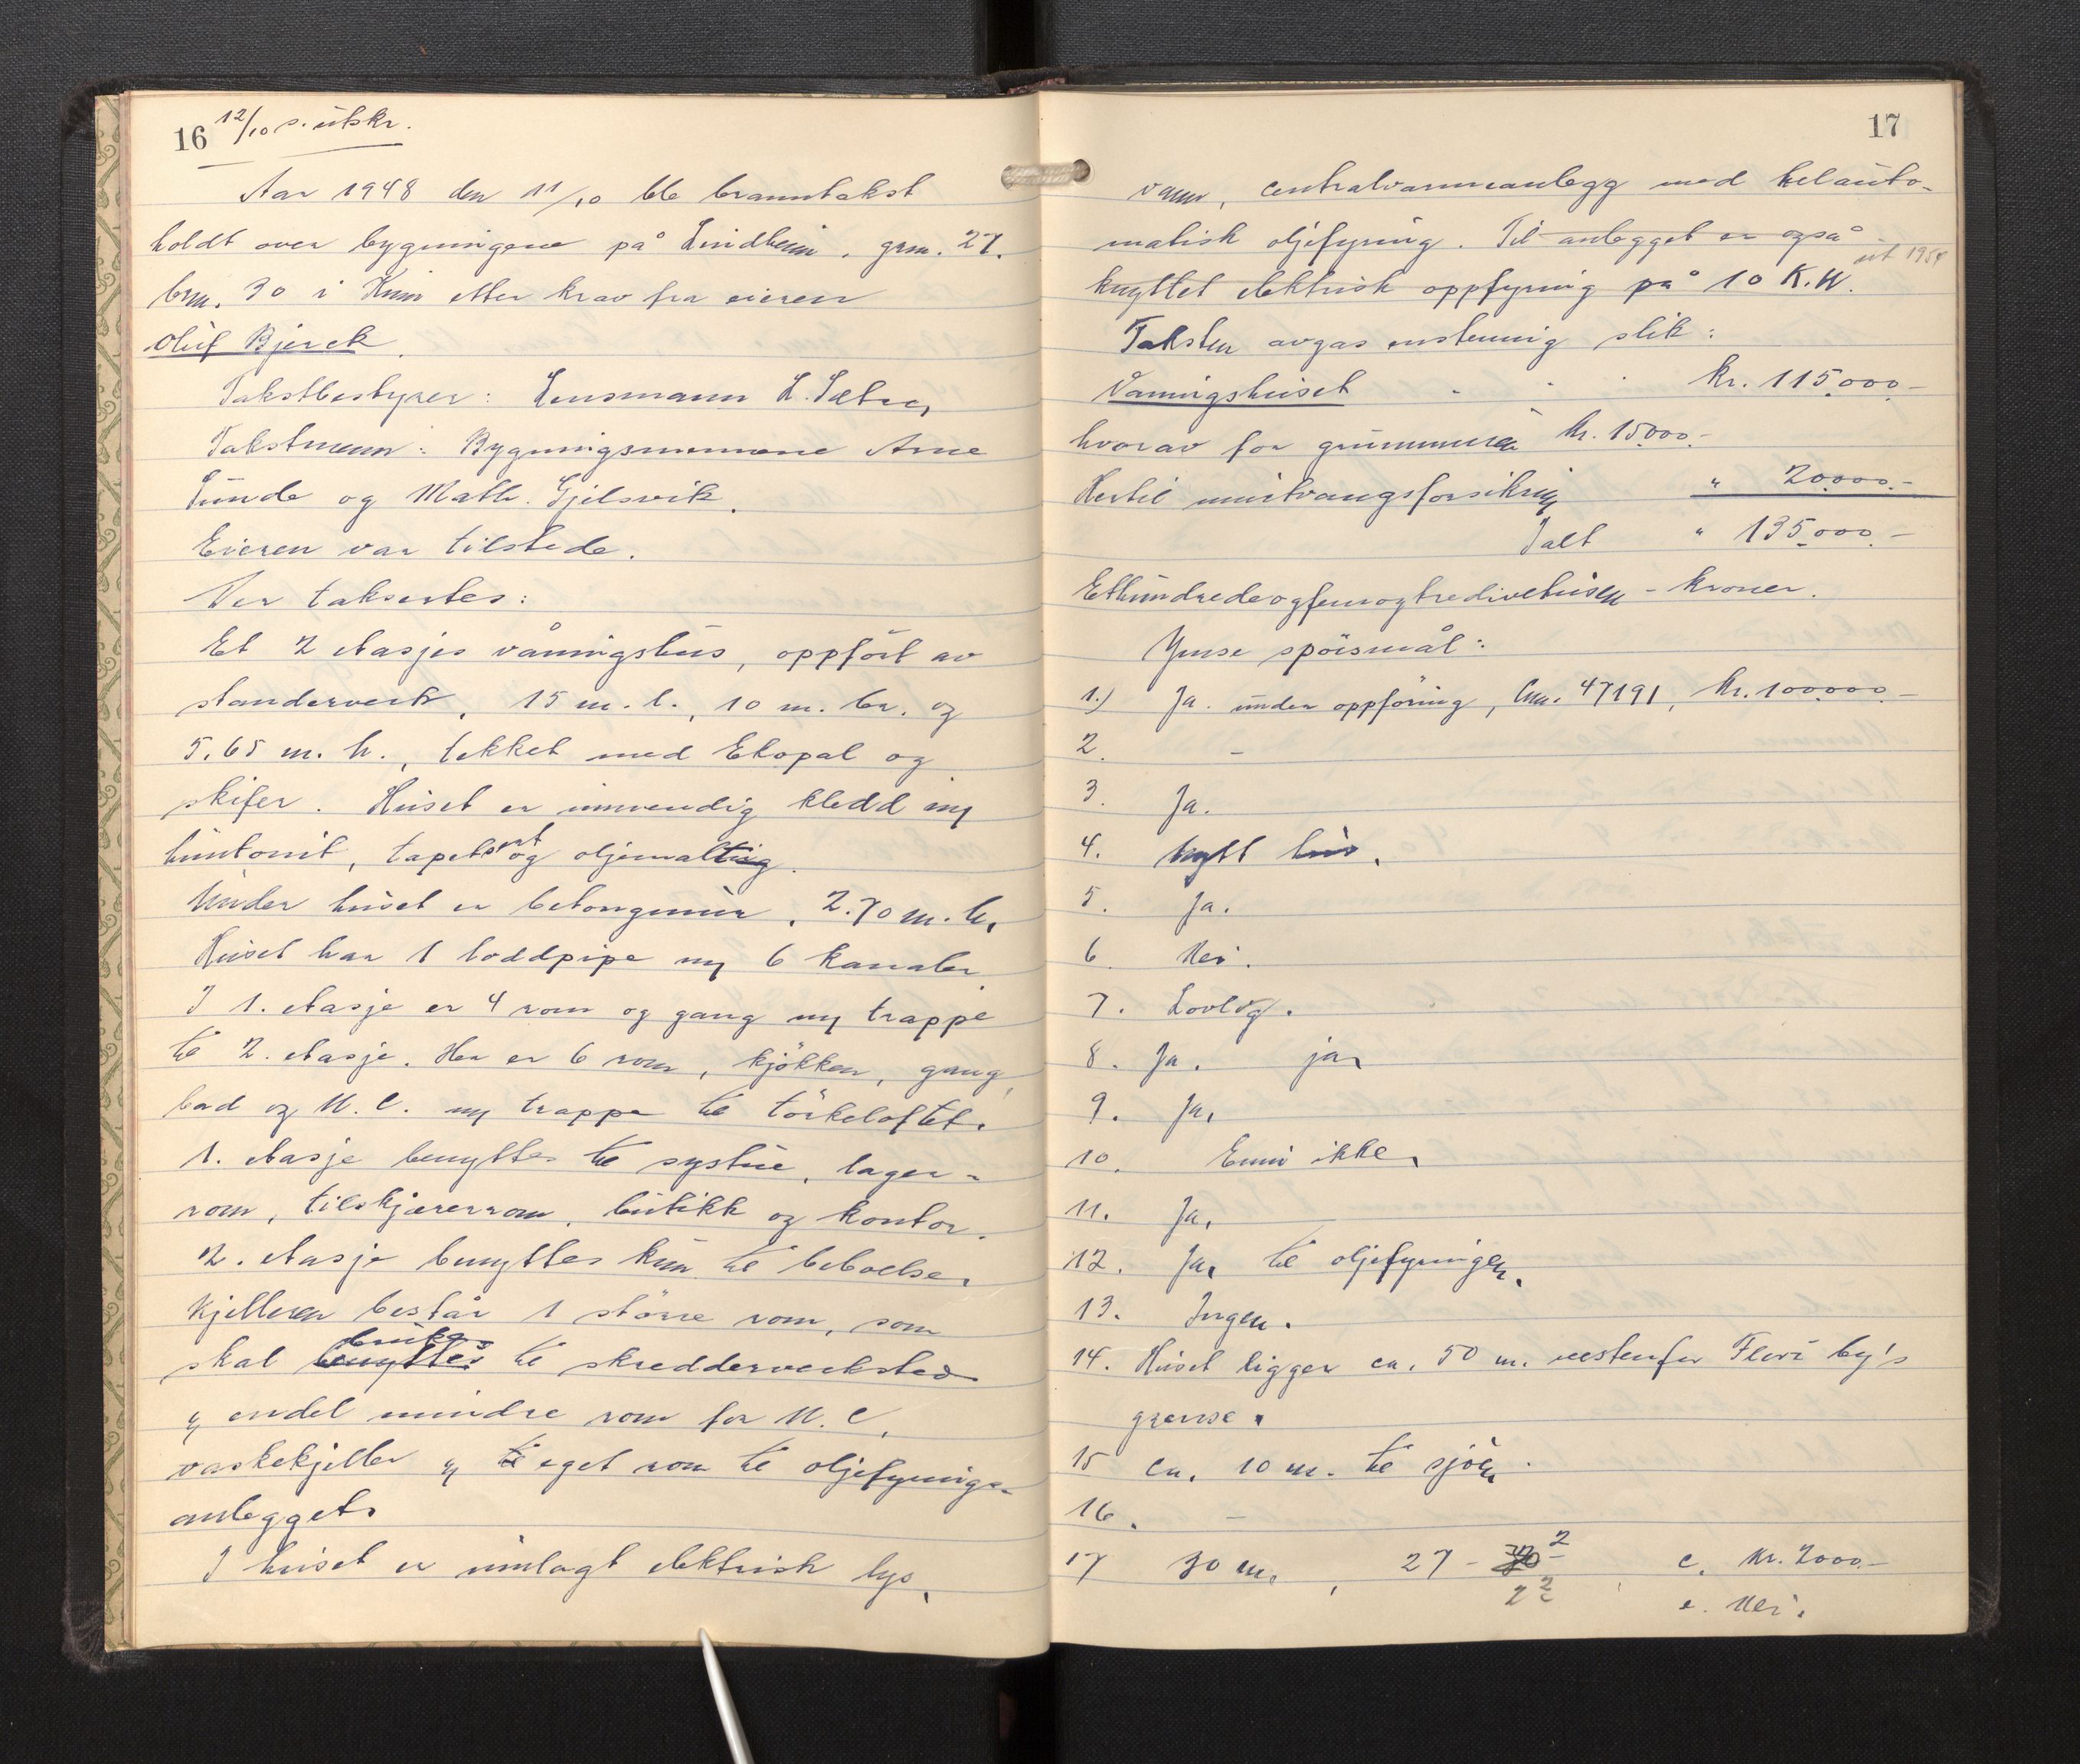 16 12/10 s. utskr.
Aar 1948 den 11/10 ble branntakst
holdt over bygningene på Lindheim, grm. 27.
brm. 30 i Kinn etter krav fra eieren
Oluf Bjerck.
Takstbestyrer: Lensmann L. Sætre,
Takstmenn: Bygningsmennene Arne
Sunde og Math. Gjelsvik.
Eieren var tilstede.
Der taksertes:
Et 2 etasjes våningshus, oppfört av
standerverk, 15 m. l., 10 m. br. og
5,65 m. h., tekket med Ekopal og
skifer. Huset er innvendig kledd m/
huntonit, tapetsert og oljemalt
Under huset er betongmur, 2.70 m. h.
Huset har 1 loddpipe m/ 6 kanaler.
I 1. etasje er 4 rom og gang m/ trappe
til 2. etasje. Her er 6 rom, kjökken, gang,
bad og W.C. m/ trappe til törkeloftet.
1. etasje benyttes til systue, lager-
rom, tilskjærerrom, butikk og kontor.
2. etasje benyttes kun til beboelse.
Kjelleren består 1 större rom, som
skal benyttes brukes til skredderverksted
& endel mindre rom for W.C.,
vaskekjeller & eget rom til oljefyrings-
anlegget.
I huset er innlagt elektrisk lys,
17
vann, centralvarmeanlegg med helauto-
matisk oljefyring. Til anlegget er også
ut 1954
knyttet elektrisk oppfyring på 10 K.W.
Taksten avgas enstemmig slik:
Vaaningshuset . . . kr. 115.000.-
hvorav for grunnmuren kr. 15.000.-
Hertil merforsikring " 20.000.-
Ialt " 135.000.-
Etthundredeogfemogtredivetusen - kroner.
Ymse spörsmål:
1.) Ja. under oppföring, brm. 47191, kr. 100.000.-
2. -
3. Ja.
4. Nytt hus.
5. Ja.
6. Nei.
7. Lovlig.
8. Ja. ja,
9. Ja,
10. Ennu ikke,
11. Ja,
12. Ja, til oljefyringen.
13. Ingen.
14. Huset ligger ca. 50 m. vestenfor Florö by's
grense.
15 ca. 10 m. til sjöen.
16. -
17 30 m. , 27 - 30 2 , c. kr. 2000.-
22 e. Nei.